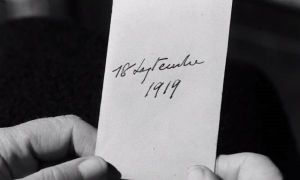 18 Septembre
1919